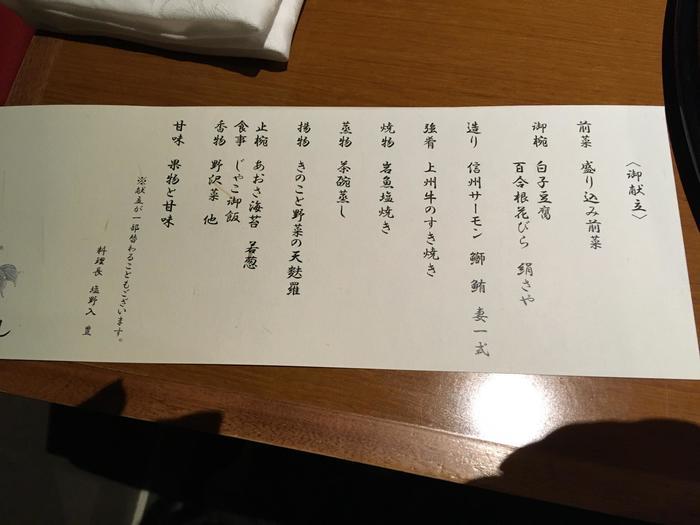 〈御献立〉
前菜　盛り込み前菜
御椀　白子豆腐
百合根花びら　絹さや
造り　信州サーモン　鰤　鮪　妻一式
強肴　上州牛のすき焼き
焼物　岩魚塩焼き
蒸物　茶碗蒸し
揚物　きのこと野菜の天麩羅
止椀　あおさ海苔　若葱
食事　じゃこ御飯
香物　野沢菜　他
甘味　果物と甘味
※献立が一部替わることもございます。
料理長　塩野入　豊